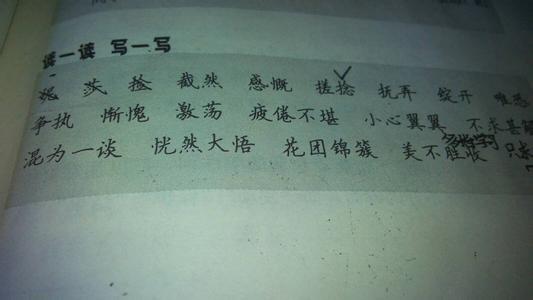 读一读 写一写
捡 截然 感慨 搓捻 抚弄 绽开
争执 惭愧 激荡 疲倦不堪 小心翼翼 不求甚解
混为一谈 恍然大悟 花团锦簇 美不胜收